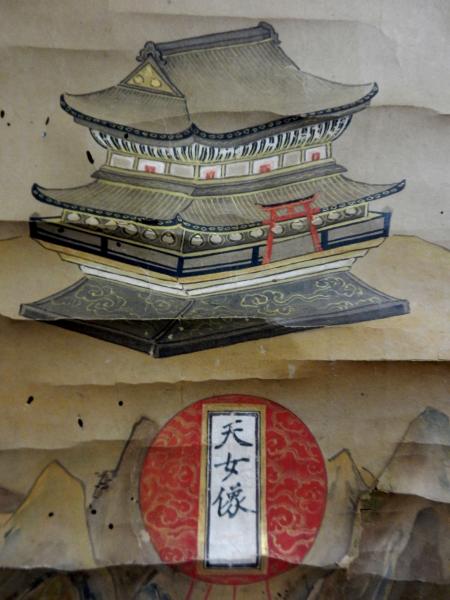 天女像